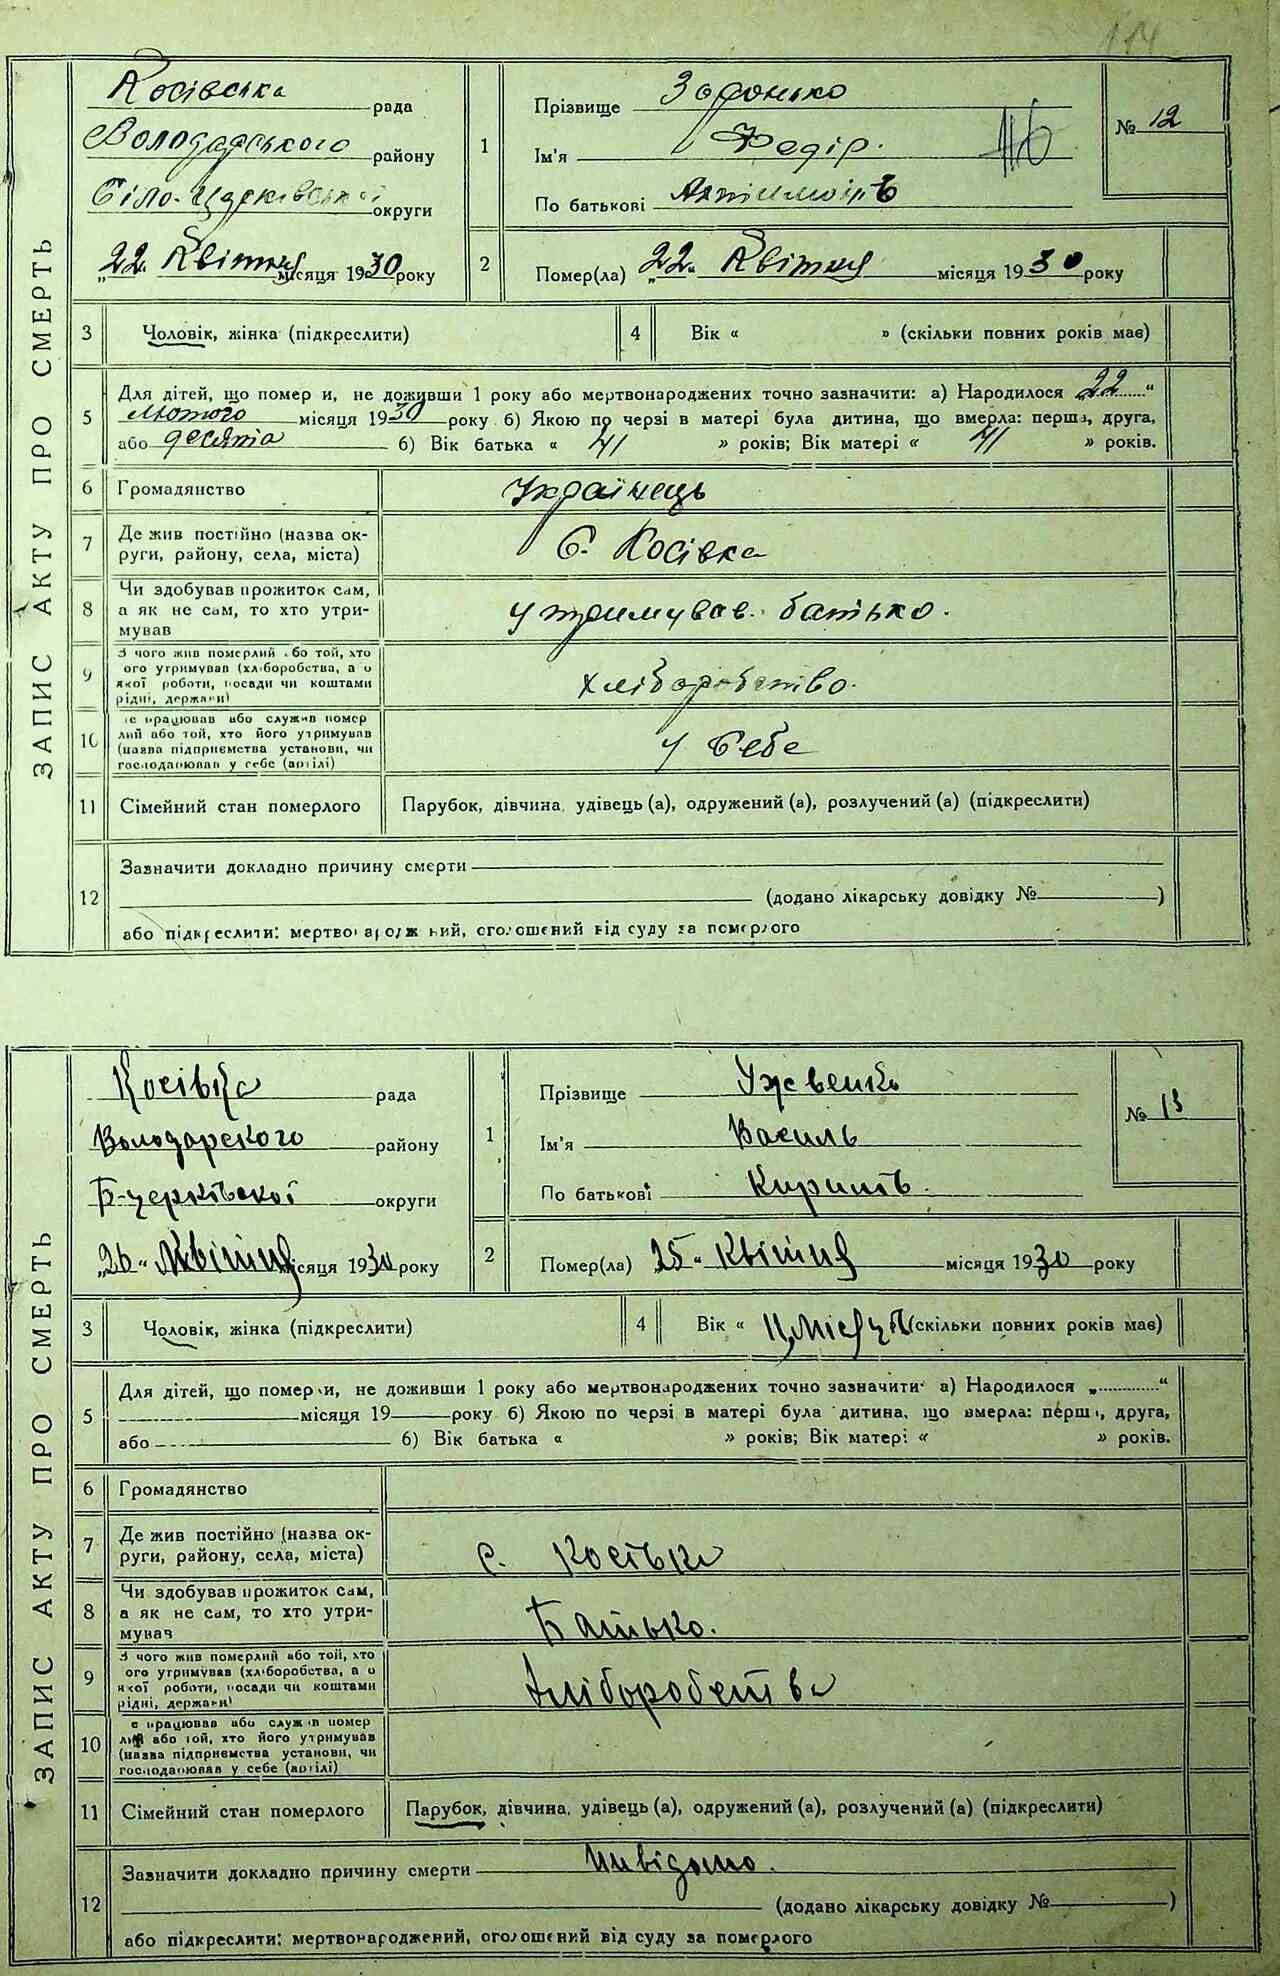 114
ЗАПИС АКТУ ПРО СМЕРТЬ
Косівська рада
Володарського району
Біло-Церківської округи
„22„ Квітня місяця 1930 року
1
Прізвище
Ім'я Федір.
По батькові
116
№ 12
2
Помер(ла) „22„ Квітня місяця 1930 року
3 Чоловік, жінка (підкреслити)
4 Вік « » (скільки повних років має)
5 Для дітей, що помер и, не доживши 1 року або мертвонароджених точно зазначити: а) Народилося „22“
лютого місяця 1930 року б) Якою по черзі в матері була дитина, що вмерла: перша, друга,
або десята б) Вік батька « 41 » років; Вік матері « 41 » років.
6 Громадянство Українець
7 Де жив постійно (назва ок-
руги, району, села, міста) С. Косівка
8 Чи здобував прожиток сам,
а як не сам, то хто утри-
мував утримував батько.
9 З чого жив померлий або той, хто
ого утримував (хліборобства, а о
якої роботи, посади чи коштами
рідні, держави) хліборобство.
10 е працював або служив помер
лий або той, хто його утримував
(назва підприємства установи, чи
господарював у себе (артілі) у себе
11 Сімейний стан померлого Парубок, дівчина, удівець (а), одружений (а), розлучений (а) (підкреслити)
12 Зазначити докладно причину смерти
(додано лікарську довідку № )
або підкреслити: мертвонароджений, оголошений від суду за померлого
ЗАПИС АКТУ ПРО СМЕРТЬ
Косівка рада
Володарского району
Б-церківської округи
„26„ Квітня місяця 1930 року
1
Прізвище Ужвенко
Ім'я Василь
По батькові Кирилів.
№ 13
2
Помер(ла) 25„ Квітня місяця 1930 року
3 Чоловік, жінка (підкреслити)
4 Вік « 11 місяців (скільки повних років має)
5 Для дітей, що помер и, не доживши 1 року або мертвонароджених точно зазначити: а) Народилося „ “
місяця 19 року б) Якою по черзі в матері була дитина, що вмерла: перша, друга,
або б) Вік батька « » років; Вік матері « » років.
6 Громадянство
7 Де жив постійно (назва ок-
руги, району, села, міста) с. Косівка
8 Чи здобував прожиток сам,
а як не сам, то хто утри-
мував Батько.
9 З чого жив померлий або той, хто
ого утримував (хліборобства, а о
якої роботи, посади чи коштами
рідні, держави) Хліборобства
10 е працював або служив помер
лий або той, хто його утримував
(назва підприємства установи, чи
господарював у себе (артілі)
11 Сімейний стан померлого Парубок, дівчина, удівець (а), одружений (а), розлучений (а) (підкреслити)
12 Зазначити докладно причину смерти Нивідомо.
(додано лікарську довідку № )
або підкреслити: мертвонароджений, оголошений від суду за померлого